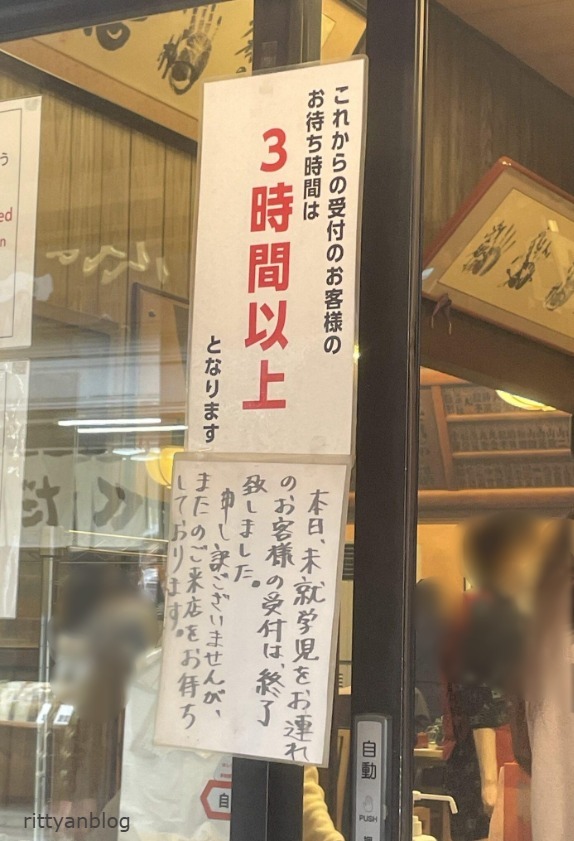 これからの受付のお客様の
お待ち時間は
3時間以上
となります
本日、未就学児をお連れ
のお客様の受付は、終了
致しました。
申し訳ございませんが、
またのご来店をお待ち
しております。
自動
PUSH
自
rittyanblog